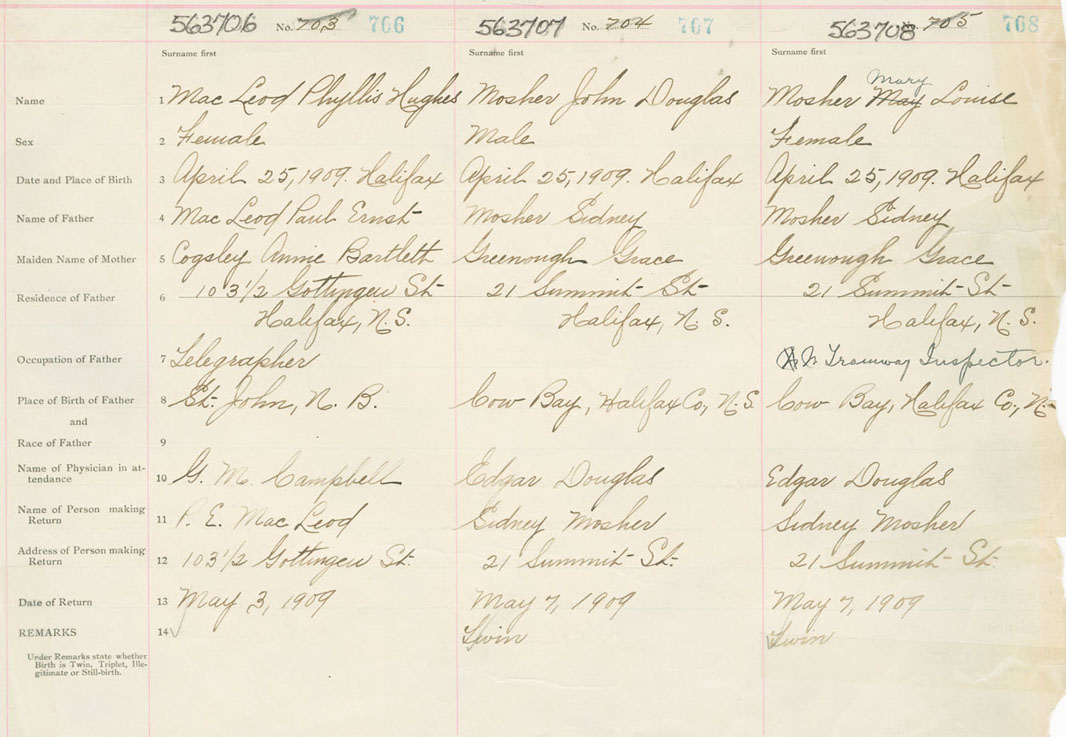 563706 No. 703 706 563707 No. 704 707 563708 705 708
Surname first Surname first Surname first
Mary
Name 1 Mac Leod Phyllis Hughes Mosher John Douglas Mosher May Louise
Sex 2 Female Male Female
Date and Place of Birth 3 April 25, 1909. Halifax April 25, 1909. Halifax April 25, 1909. Halifax
Name of Father 4 Mac Leod Paul Ernst Mosher Sidney Mosher Sidney
Maiden Name of Mother 5 Cogsley Annie Bartlett Greenough Grace Greenough Grace
Residence of Father 6 103 1/2 Gottingen St. 21 Summit St. 21 Summit St.
Halifax, N.S. Halifax, N.S. Halifax, N.S.
Occupation of Father 7 Telegrapher Tramway Inspector.
Place of Birth of Father 8 St. John, N.B. Cow Bay, Halifax Co., N.S. Cow Bay, Halifax Co., N.
and
Race of Father 9
Name of Physician in at-
tendance 10 G. M. Campbell Edgar Douglas Edgar Douglas
Name of Person making
Return 11 P. E. Mac Leod Sidney Mosher Sidney Mosher
Address of Person making
Return 12 103 1/2 Gottingen St. 21 Summit St. 21 Summit St.
Date of Return 13 May 3, 1909 May 7, 1909 May 7, 1909
REMARKS 14 Twin Twin
Under Remarks state whether
Birth is Twin, Triplet, Ille-
gitimate or Still-birth.